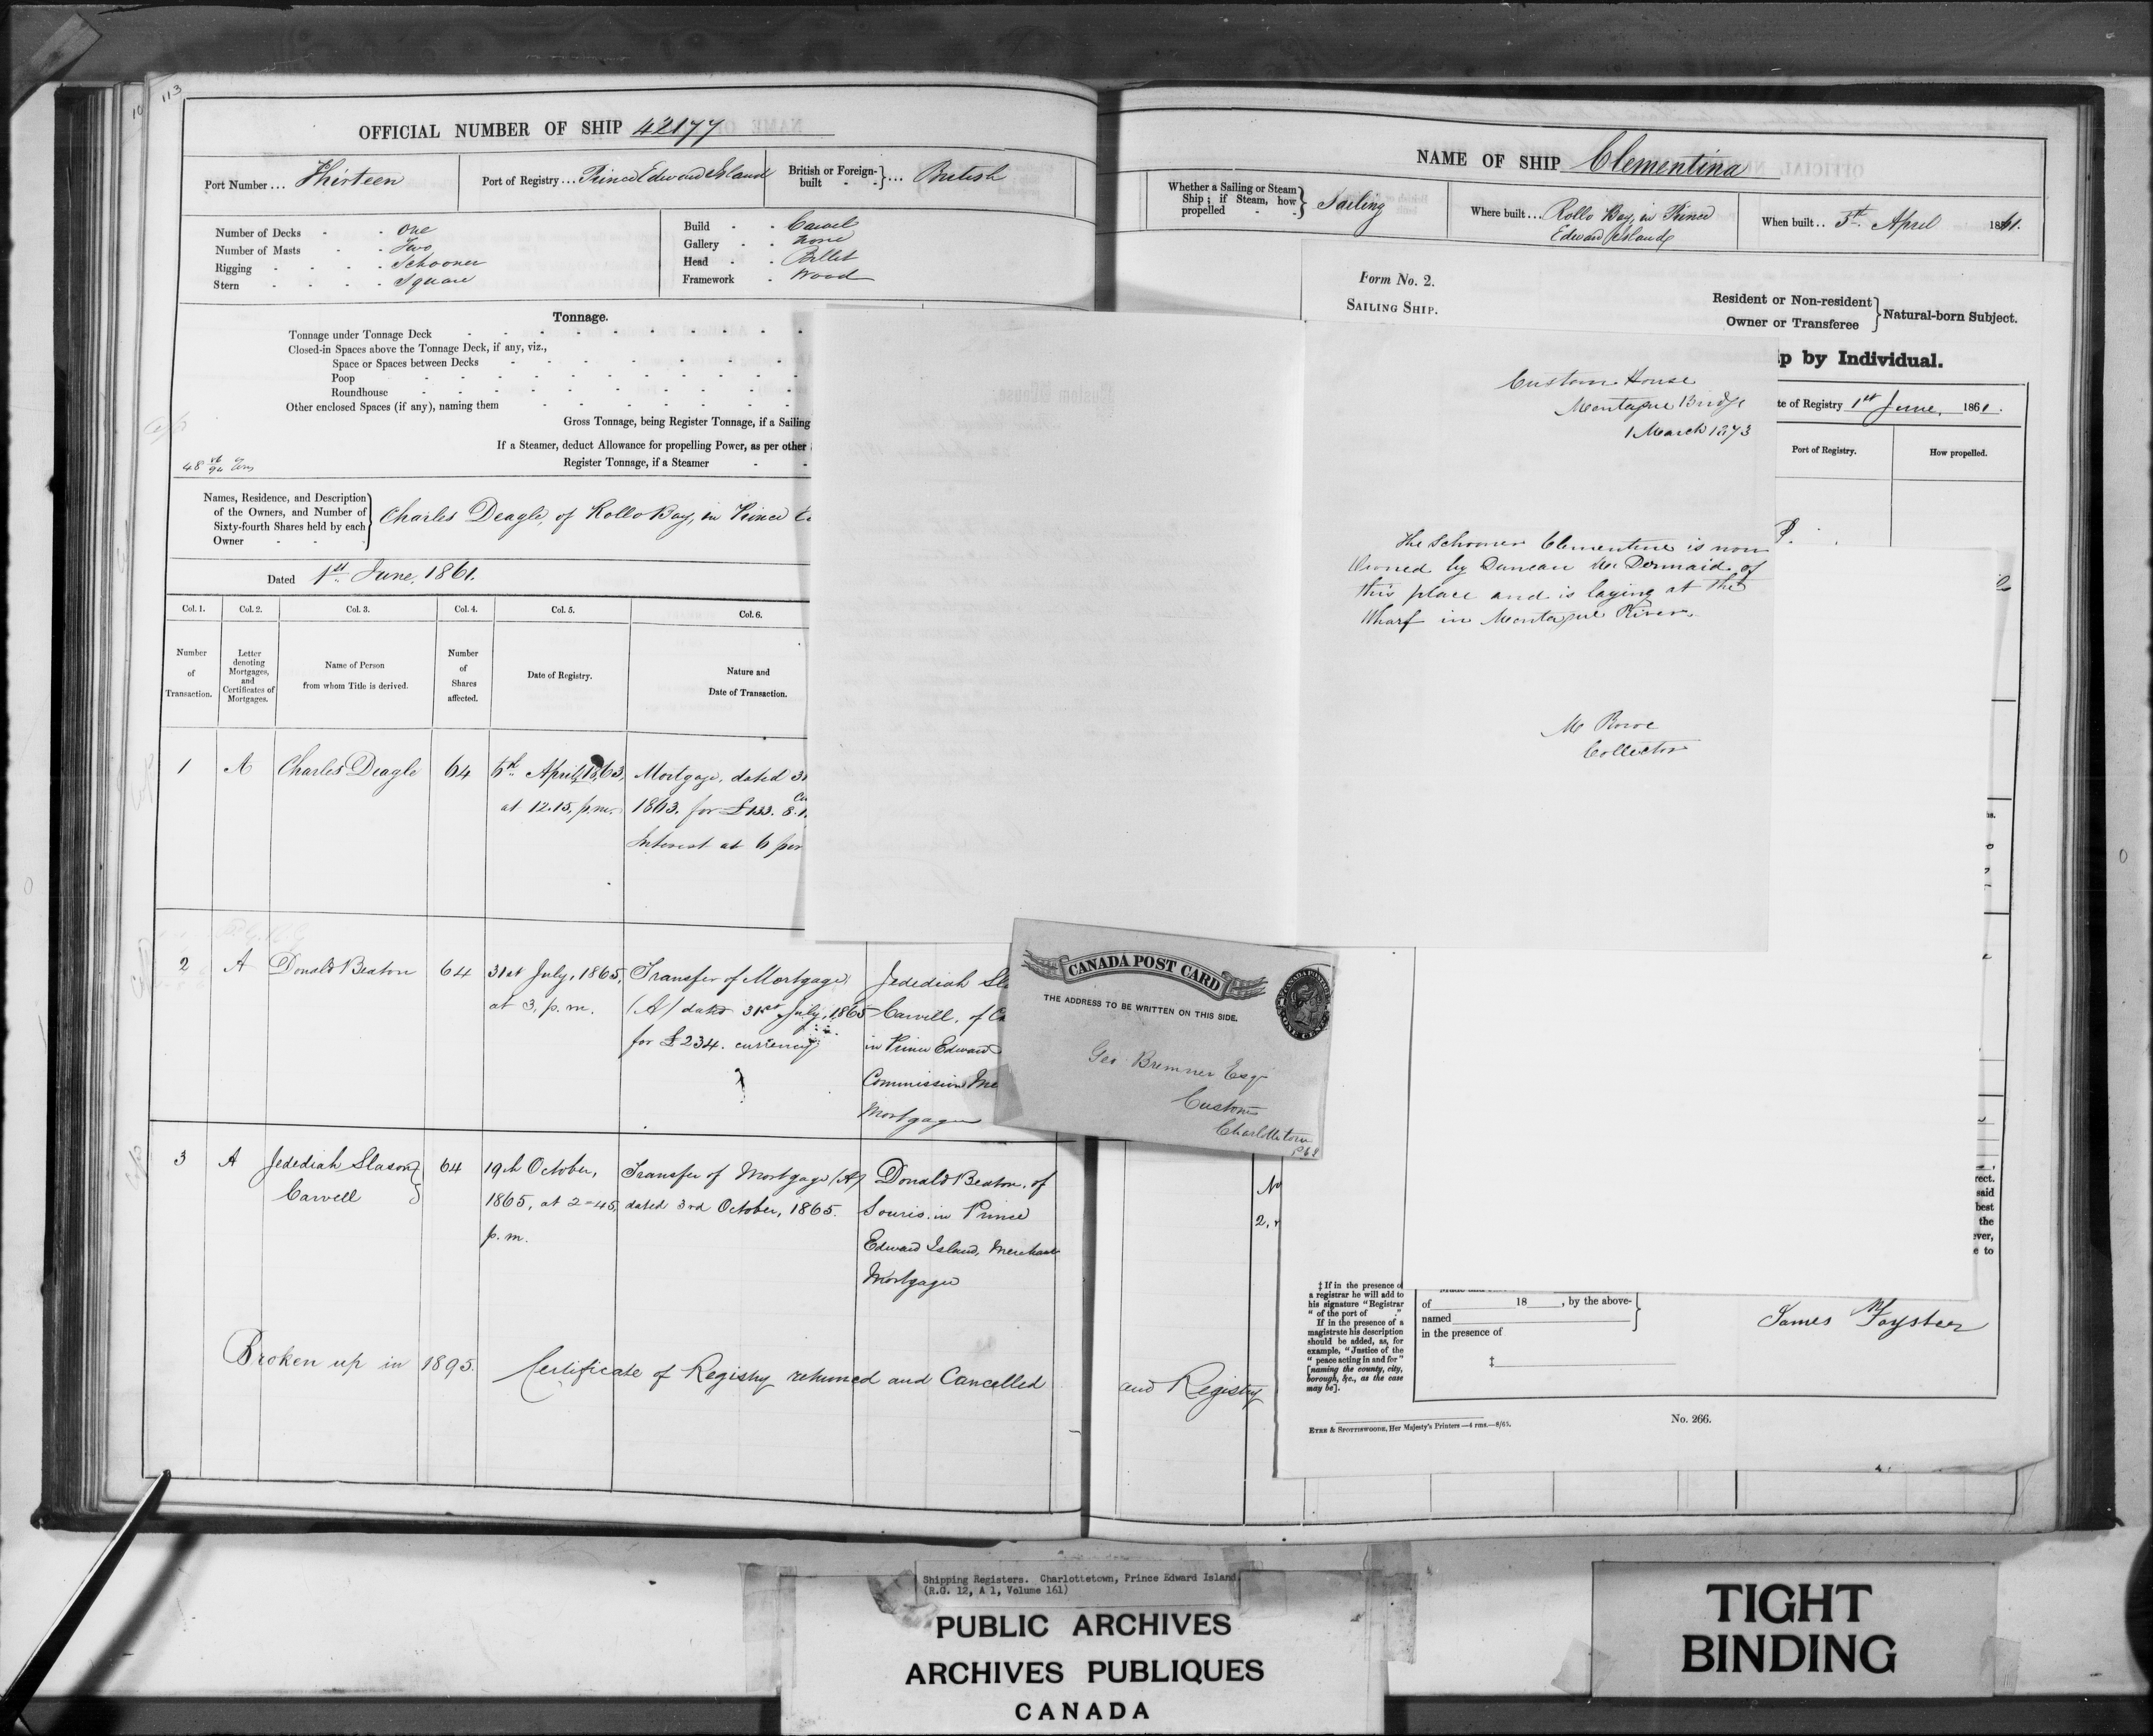 113
OFFICIAL NUMBER OF SHIP 42177
Port Number... Thirteen
Port of Registry... Prince Edward Island
British or Foreign-built - - } ... British
Number of Decks - - One
Number of Masts - - Two
Rigging - - - - Schooner
Stern - - - - Square
Build - - Carvel
Gallery - - None
Head - - Billet
Framework - Wood
Tonnage.
Tonnage under Tonnage Deck
Closed-in Spaces above the Tonnage Deck, if any, viz.,
Space or Spaces between Decks
Poop
Roundhouse
Other enclosed Spaces (if any), naming them
Gross Tonnage, being Register Tonnage, if a Sailing
If a Steamer, deduct Allowance for propelling Power, as per other
Register Tonnage, if a Steamer
Names, Residence, and Description
of the Owners, and Number of
Sixty-fourth Shares held by each
Owner
Charles Deagle, of Rollo Bay, in Prince
Dated 1st June, 1861.
Col. 1. Col. 2. Col. 3. Col. 4. Col. 5. Col. 6.
Number of Transaction.
Letter denoting Mortgages, and Certificates of Mortgages.
Name of Person from whom Title is derived.
Number of Shares affected.
Date of Registry.
Nature and Date of Transaction.
1 A Charles Deagle 64
6th April, 1863,
at 12.15, p.m.
Mortgage, dated
1863. for £133. 8.
Interest at 6 per
2 A Donald Beaton 64
31st July, 1865,
at 3, p. m.
Transfer of Mortgage
(A) dated 31st July, 1865
for £234. currency
Jedediah
Carvell, of
in Prince Edward
Commission
Mortgagee
3 A Jedediah Slason
Carvell
64
19th October,
1865, at 2=45,
p. m.
Transfer of Mortgage (A)
dated 3rd October, 1865.
Donald Beaton, of
Souris, in Prince
Edward Island, Merchant
Mortgagee
Broken up in 1895. Certificate of Registry returned and Cancelled
and Registry
NAME OF SHIP Clementina
Whether a Sailing or Steam
Ship; if Steam, how
propelled - - } Sailing
Where built... Rollo Bay, in Prince
Edward Island
When built.. 5th April 1861.
Form No. 2.
SAILING SHIP.
Resident or Non-resident
Owner or Transferee } Natural-born Subject.
p by Individual.
te of Registry 1st June, 1861.
Port of Registry.
How propelled.
Custom House
Montague Bridge
1 March 1873
The Schooner Clementine is now
Owned by Duncan McDermaid of
this place and is laying at the
Wharf in Montague River.
Collector
CANADA POST CARD
THE ADDRESS TO BE WRITTEN ON THIS SIDE.
CANADA POSTAGE
ONE CENT
Geo Bremner Esq
Customs
Charlottetown
P E I
rect.
said
best
the
ever,
e to
‡ If in the presence of
a registrar he will add to
his signature "Registrar
" of the port of ."
If in the presence of a
magistrate his description
should be added, as, for
example, "Justice of the
" peace acting in and for"
[naming the county, city,
borough, &c., as the case
may be].
of 18 , by the above-
named
in the presence of
‡
James
EYRE & SPOTTISWOODE, Her Majesty's Printers.—4 rms.—8/65.
No. 266.
Shipping Registers. Charlottetown, Prince Edward Island.
(R.G. 12, A 1, Volume 161)
PUBLIC ARCHIVES
ARCHIVES PUBLIQUES
CANADA
TIGHT
BINDING